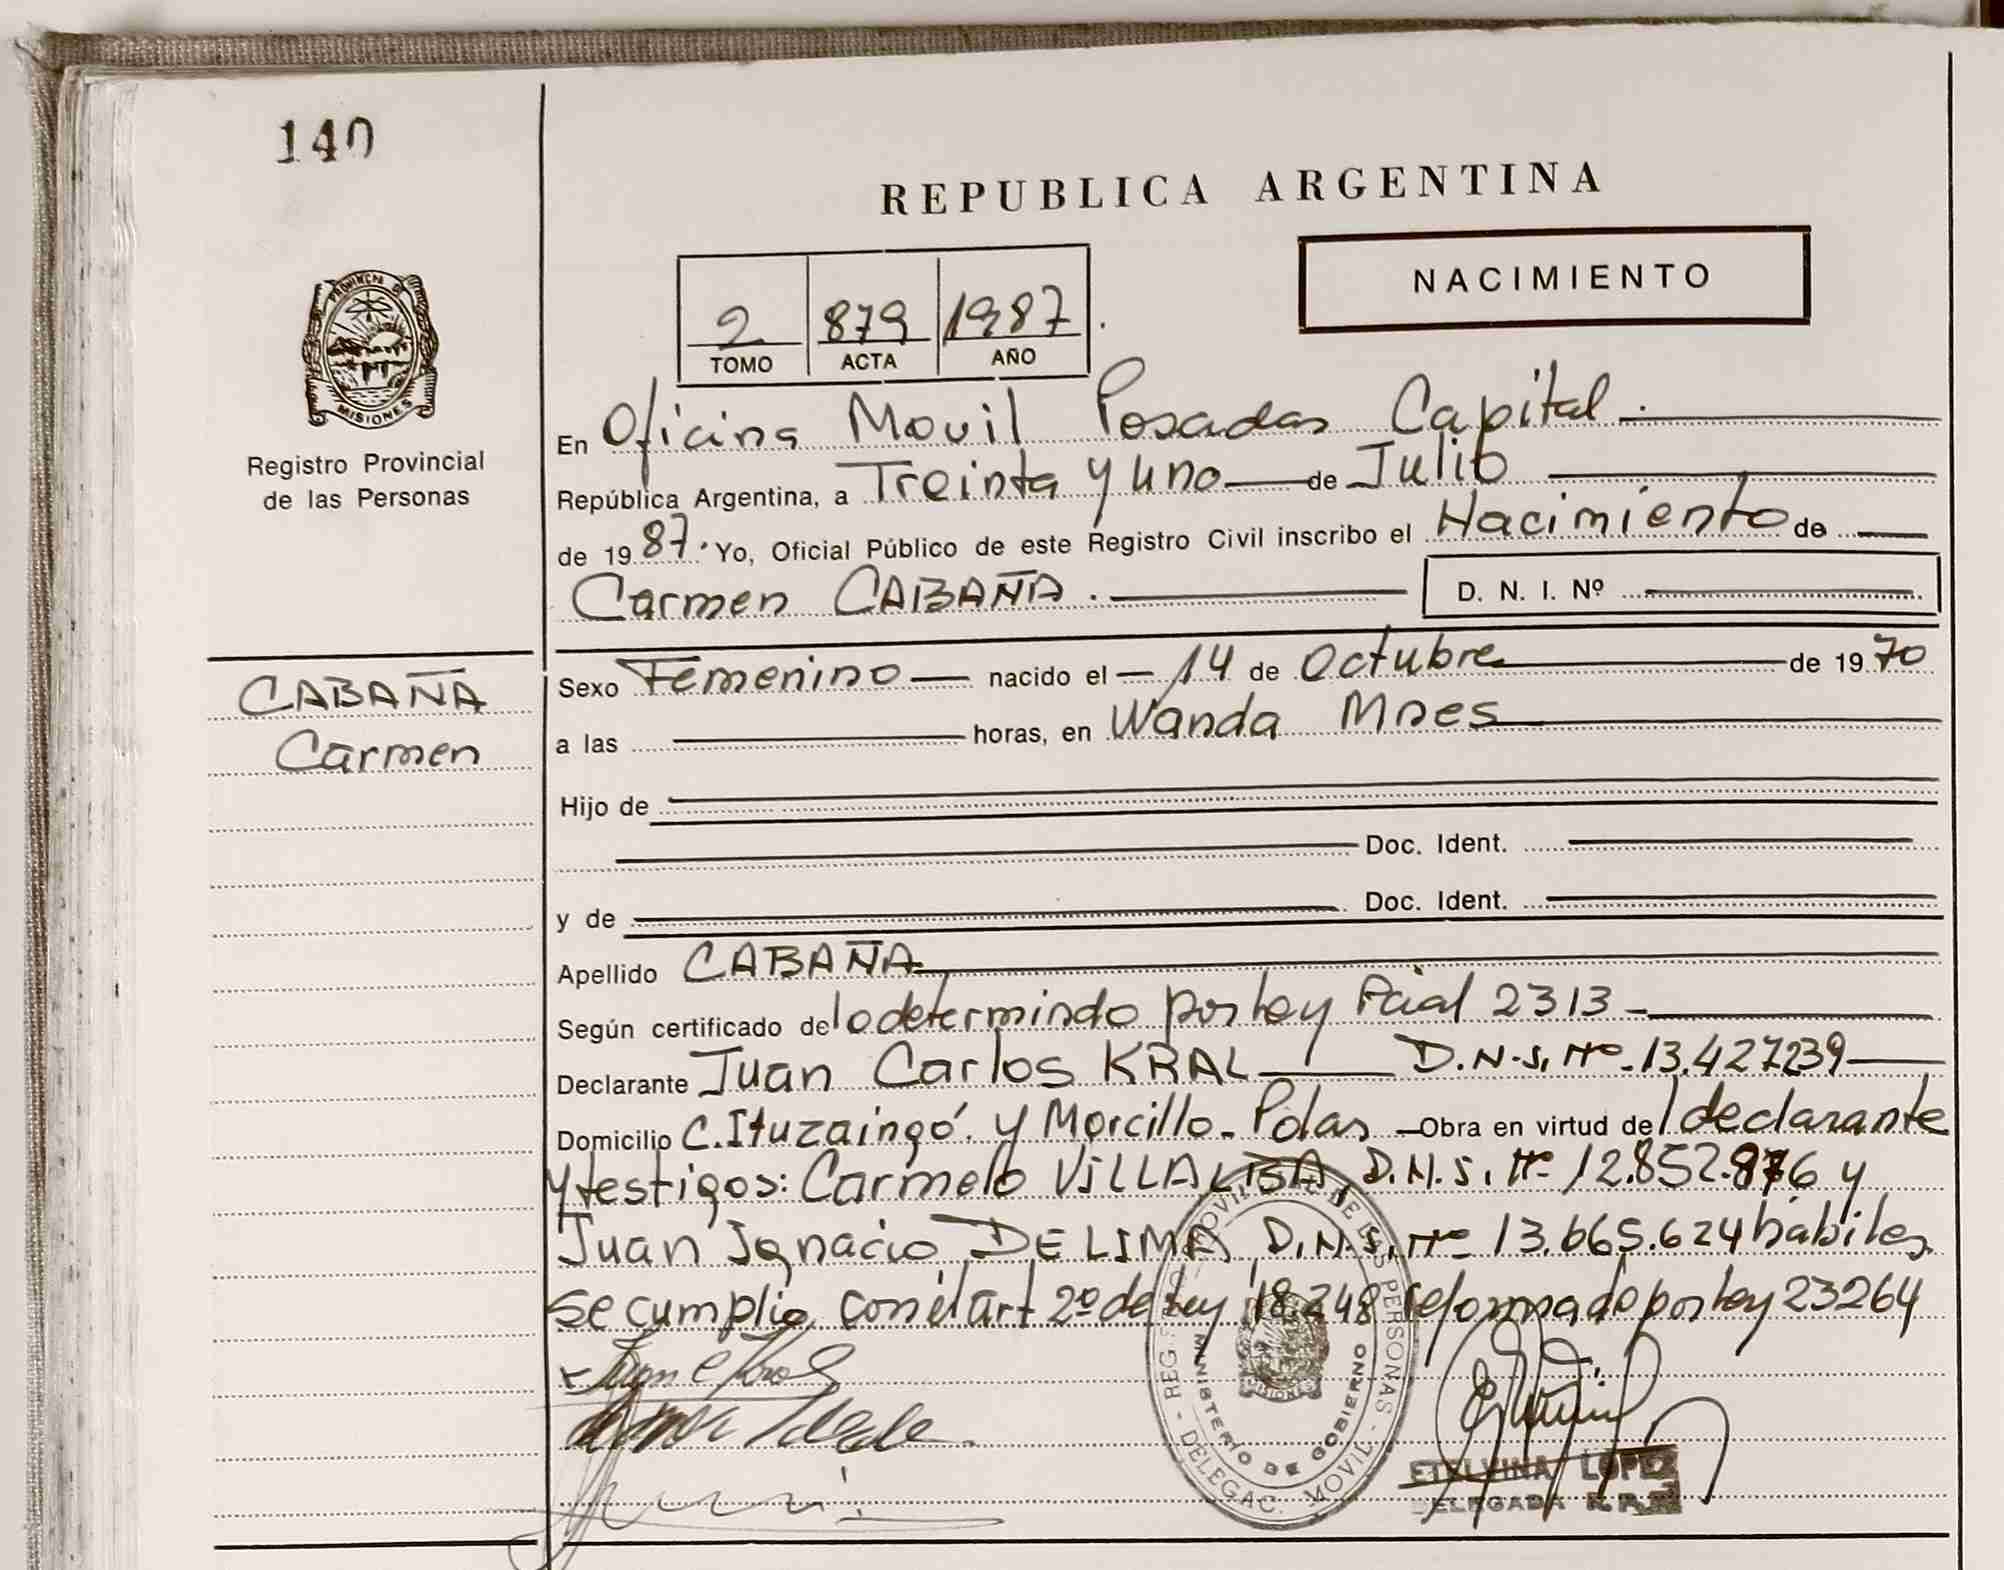 140
REPUBLICA ARGENTINA
NACIMIENTO
2 879 1987.
TOMO ACTA AÑO
PROVINCIA DE
MISIONES
Registro Provincial
de las Personas
En Oficina Movil Posadas Capital.
República Argentina, a Treinta y uno de Julio
de 1987. Yo, Oficial Público de este Registro Civil inscribo el Nacimiento de
Carmen CABAÑA. D. N. I. Nº
CABAÑA
Carmen
Sexo Femenino nacido el 14 de Octubre de 1970
a las horas, en Wanda Mnes
Hijo de
Doc. Ident.
y de Doc. Ident.
Apellido CABAÑA
Según certificado de lo determindo por Ley Pcial 2313
Declarante Juan Carlos KRAL D.N.I. Nº 13.427239
Domicilio C. Ituzaingó y Morcillo - Pdas Obra en virtud del declarante
y testigos: Carmelo VILLALBA, D.N.I. Nº 12.852.876 y
Juan Ignacio DE LIMA, D.N.I. Nº 13.665.624 habiles
se cumplio con el art 2º de Ley 18.248 reformado por Ley 23264
MINISTERIO DE GOBIERNO
DELEGAC. MOVIL
MISIONES
ETELVINA LOPEZ
DELEGADA